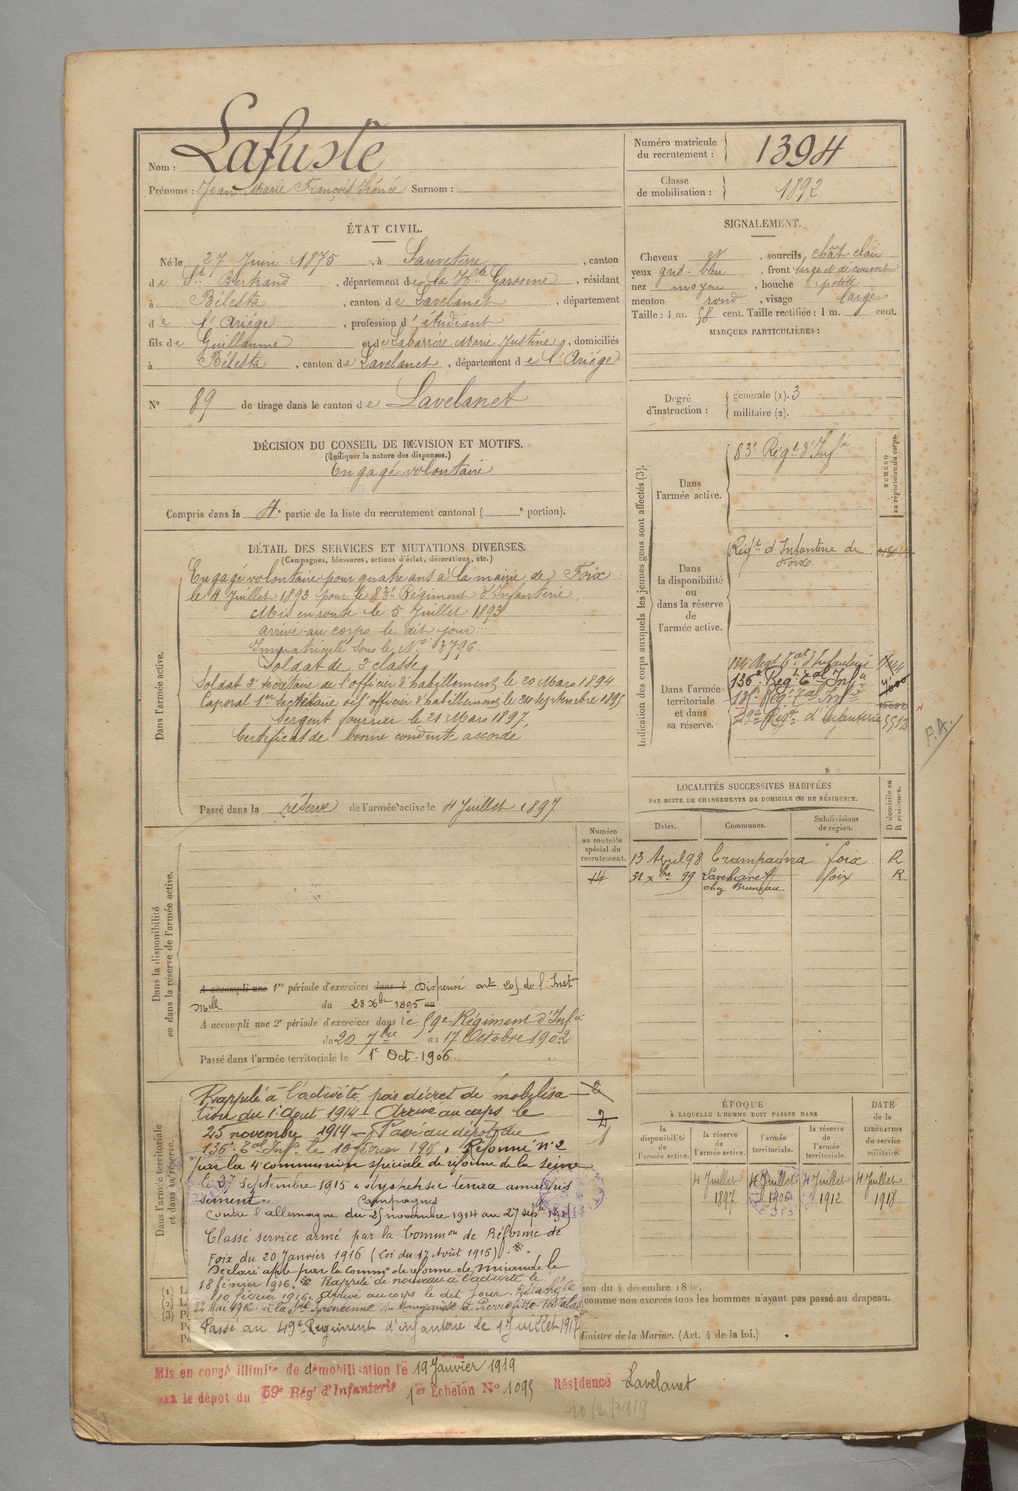 Nom : Lafuste
Prénoms : Jean Marie François Irénée Surnom :
Numéro matricule du recrutement : 1394
Classe de mobilisation : 1892
ÉTAT CIVIL.
Né le 27 Juin 1875, à Sauveterre, canton
de St Bertrand, département de la Hte Garonne, résidant
à Bélesta, canton de Lavelanet, département
de l'Ariége, profession d'étudiant
fils de Guillaume et de Labarrère Marie Justine, domiciliés
à Bélesta, canton de Lavelanet, département de l'Ariége
N° 89 de tirage dans le canton de Lavelanet
SIGNALEMENT.
Cheveux, sourcils chât clair
yeux gris-bleu, front large et découvert
nez moyen, bouche petite
menton rond, visage large
Taille : 1 m. 58 cent. Taille rectifiée : 1 m. cent.
MARQUES PARTICULIÈRES :
Degré d'instruction : générale (1). 3
militaire (2).
DÉCISION DU CONSEIL DE REVISION ET MOTIFS.
(Indiquer la nature des dispenses.)
Engagé volontaire
Compris dans la 4e partie de la liste du recrutement cantonal ( e portion).
DÉTAIL DES SERVICES ET MUTATIONS DIVERSES.
(Campagnes, blessures, actions d'éclat, décorations, etc.)
Dans l'armée active.
Engagé volontaire pour quatre ans à la mairie de Foix
le 4 Juillet 1893 pour le 83e Régiment d'Infanterie
Mis en route le 5 Juillet 1893
arrivé au corps le dit jour
Immatriculé sous le N° 3796.
Soldat de 2e classe
Soldat 3e secrétaire de l'officier d'habillement le 20 Mars 1894
Caporal 1er secrétaire de l'officier d'habillement le 20 septembre 1895
Sergent fourrier le 21 Mars 1897
Certificat de bonne conduite accordé
Passé dans la réserve de l'armée active le 4 Juillet 1897
Indication des corps auxquels les jeunes gens sont affectés (3).
NUMÉRO au répertoire du corps.
Dans l'armée active.
83e Régt d'Infie
Dans la disponibilité ou dans la réserve de l'armée active.
Régt d'Infanterie de Foix
Dans l'armée territoriale et dans sa réserve.
134 Régt Tal d'Infanterie
136e Régt Tal Infie
135e Régt Tal Infie
49e Régt d'Infanterie 5512
P.A.
LOCALITÉS SUCCESSIVES HABITÉES
PAR SUITE DE CHANGEMENTS DE DOMICILE OU DE RÉSIDENCE.
Dates. Communes. Subdivisions de région. D domicile ou R résidence.
13 April 98 Crampagna Foix R
31 xbre 99 Lavelanet Foix R
chez Bruneau
Numéro au contrôle spécial du recrutement.
14
Dans la disponibilité ou dans la réserve de l'armée active.
A accompli une 1re période d'exercices dans l Dispensé art 205 de l'Inst
Melle du 28 Xbre 1895 au
A accompli une 2e période d'exercices dans le 59e Régiment d'Infie
du 20 7bre au 17 Octobre 1902
Passé dans l'armée territoriale le 1er Oct. 1906
Dans l'armée territoriale et dans sa réserve.
Rappelé à l'activité par décret de mobilisa-
tion du 1er Août 1914 – Arrivé au corps le
25 novembre 1914 – Passé au dépôt du
136e Tal Inf. le 10 février 191 . Réformé n° 2
par la 4e commission spéciale de réforme de la Seine
le 27 septembre 1915 « dyspepsie tenace amaigris
sement ».
Campagnes
contre l'allemagne du 25 novembre 1914 au 27 sept 1915
Classé service armé par la Common de Réforme de
Foix du 20 Janvier 1916 (Loi du 17 Août 1915)
Déclaré apte par la Comm. de réforme de Mirande le
18 février 1916. Rappelé de nouveau à l'activité le
10 février 1916. Arrivé au corps le dit jour. Détaché le
22 Mai 1916 à la Sté Pyrénéenne du Manganèse à Pierrefitte-Nestalas
Passé au 49e Régiment d'infanterie le 1 Juillet 1917
ÉPOQUE
À LAQUELLE L'HOMME DOIT PASSER DANS
la disponibilité de l'armée active. la réserve de l'armée active. l'armée territoriale. la réserve de l'armée territoriale.
DATE de la LIBÉRATION du service militaire.
4 Juillet 1897 4 Juillet 1906 4 Juillet 1912 4 Juillet 1918
comme non exercés tous les hommes n'ayant pas passé au drapeau.
Ministre de la Marine. (Art. 4 de la loi.)
Mis en congé illimité de démobilisation le 19 Janvier 1919
par le dépôt du 59e Régt d'Infanterie 1er Échelon N° 1095 Résidence Lavelanet
10/2/1919